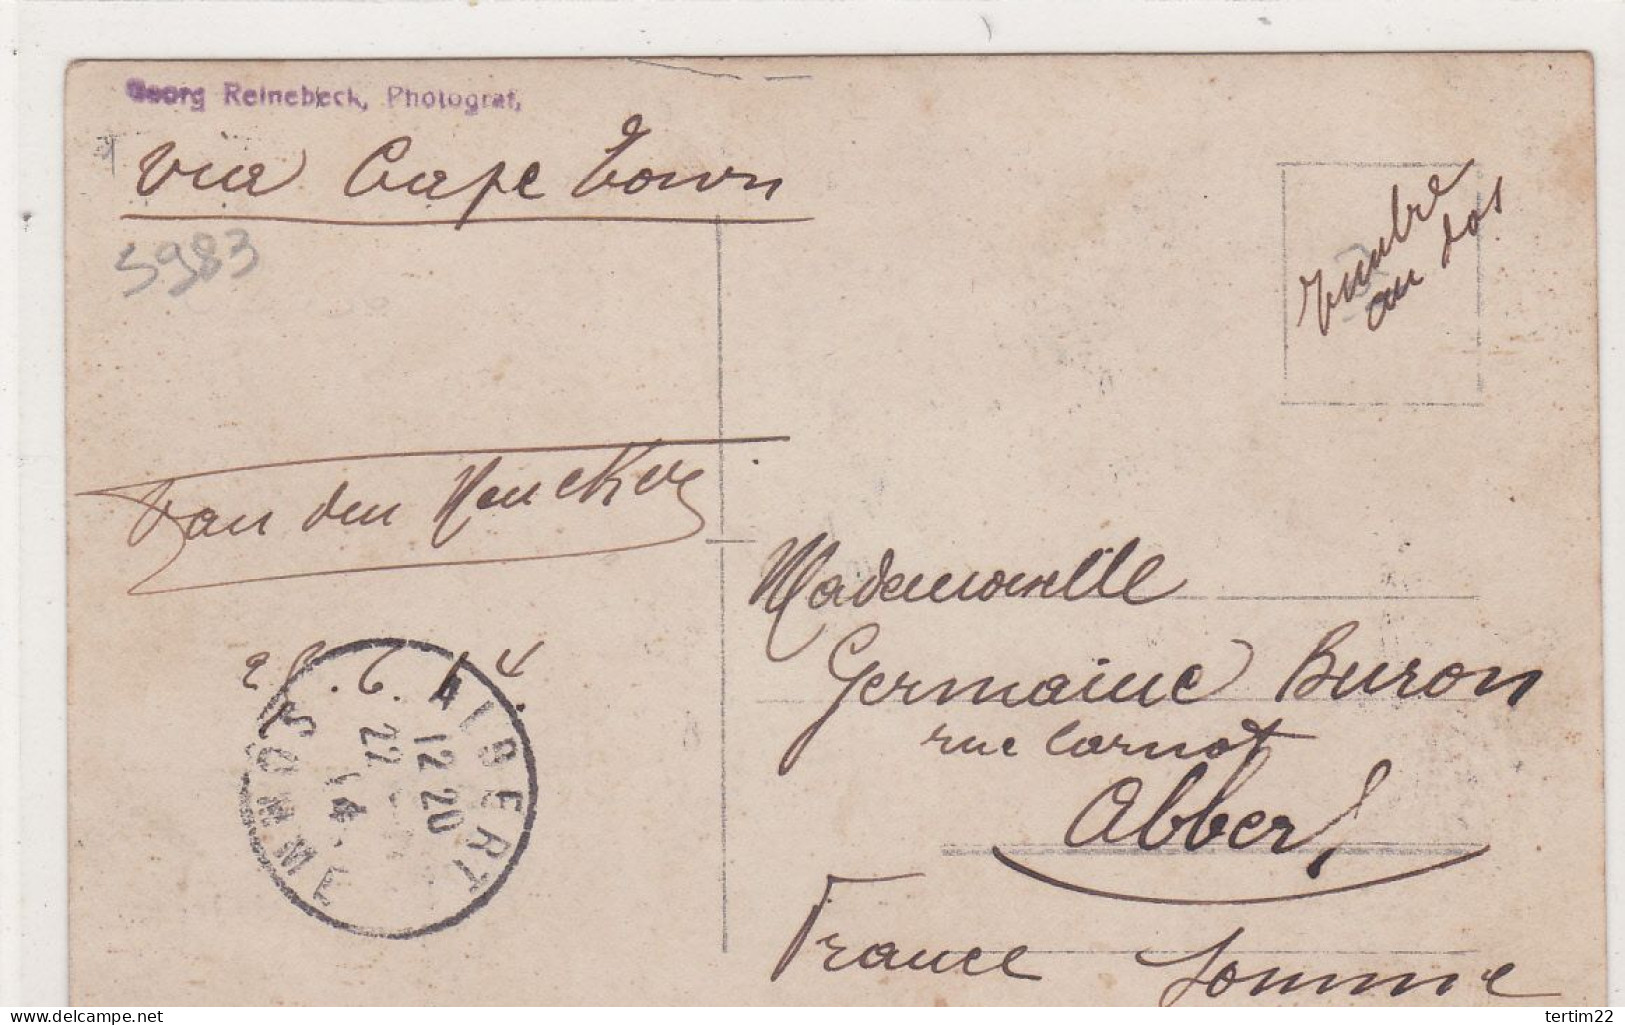 Georg Reinebeck, Photograf,
via Cape Town
5983
timbre
au dos
van den
Mademoiselle
Germaine Buron
rue Carnot
Albert
France Somme
.6.14.
ALBERT
12 20
22
14
SOMME
delcampe.net
tertim22